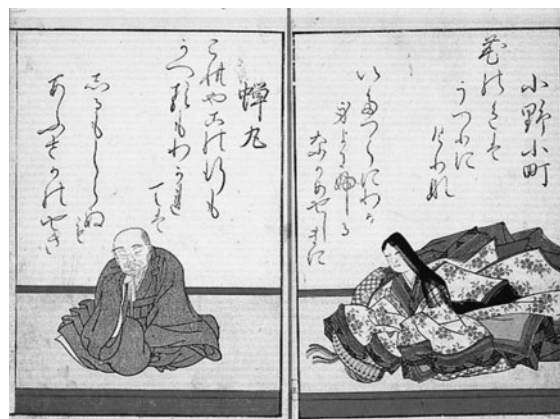 小野小町
花のいろは
うつりに
けりな
いたつらにわか
身よにふる
なかめせしまに
蝉丸
これやこの行も
かへるもわかれ
ては
しるもしらぬ
も
あふさかのせき